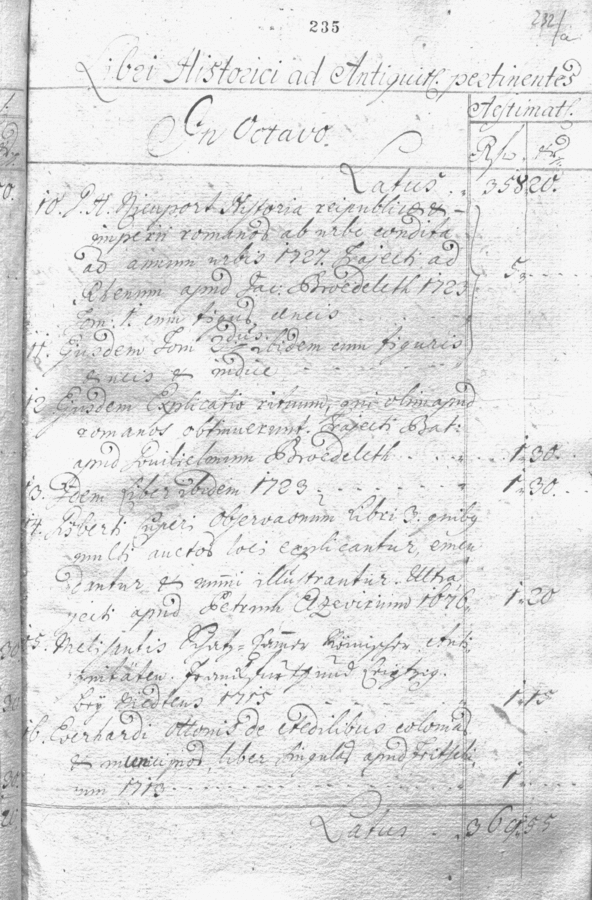 235
232/a
Libri Historici ad Antiquit. pertinentes
Aestimat.
In Octavo.
Rf. xr.
Latus . . 358 20.
10. P. H. Nieuport Historia reipublicæ &
imperii romanor ab urbe condita
ad annum urbis 1727. Trajecti ad
Rhenum apud Jac. Broedeleth 1723
Tom. 1. cum figur. æneis . . 5
11. Ejusdem Tom 2dus ibidem cum figuris
æneis & indice
12 Ejusdem Explicatio rituum, qui olim apud
romanos obtinuerunt. Trajecti Bat:
apud Guilielmum Broedeleth . . . 1. 30.
13. Idem Liber ibidem 1723 . . . . 1. 30.
14. Roberti Cuperi Observaonum Libri 3. quibg
multi auctor loci explicantur, emen
dantur & numi illustrantur. Ultra
jecti apud Petrum Elzevirium 1670. 1. 20
15. Melisantis Schatz-Kammer Römischer Anti
quitäten. Franckfurt und Leipzig.
bey 1715 1. 15
16. Everhardi Ottonis de Aedilibus coloniar
& municipior, liber singular apud Fritschi
um 1713 . . . . 1
Latus . . 369. 55